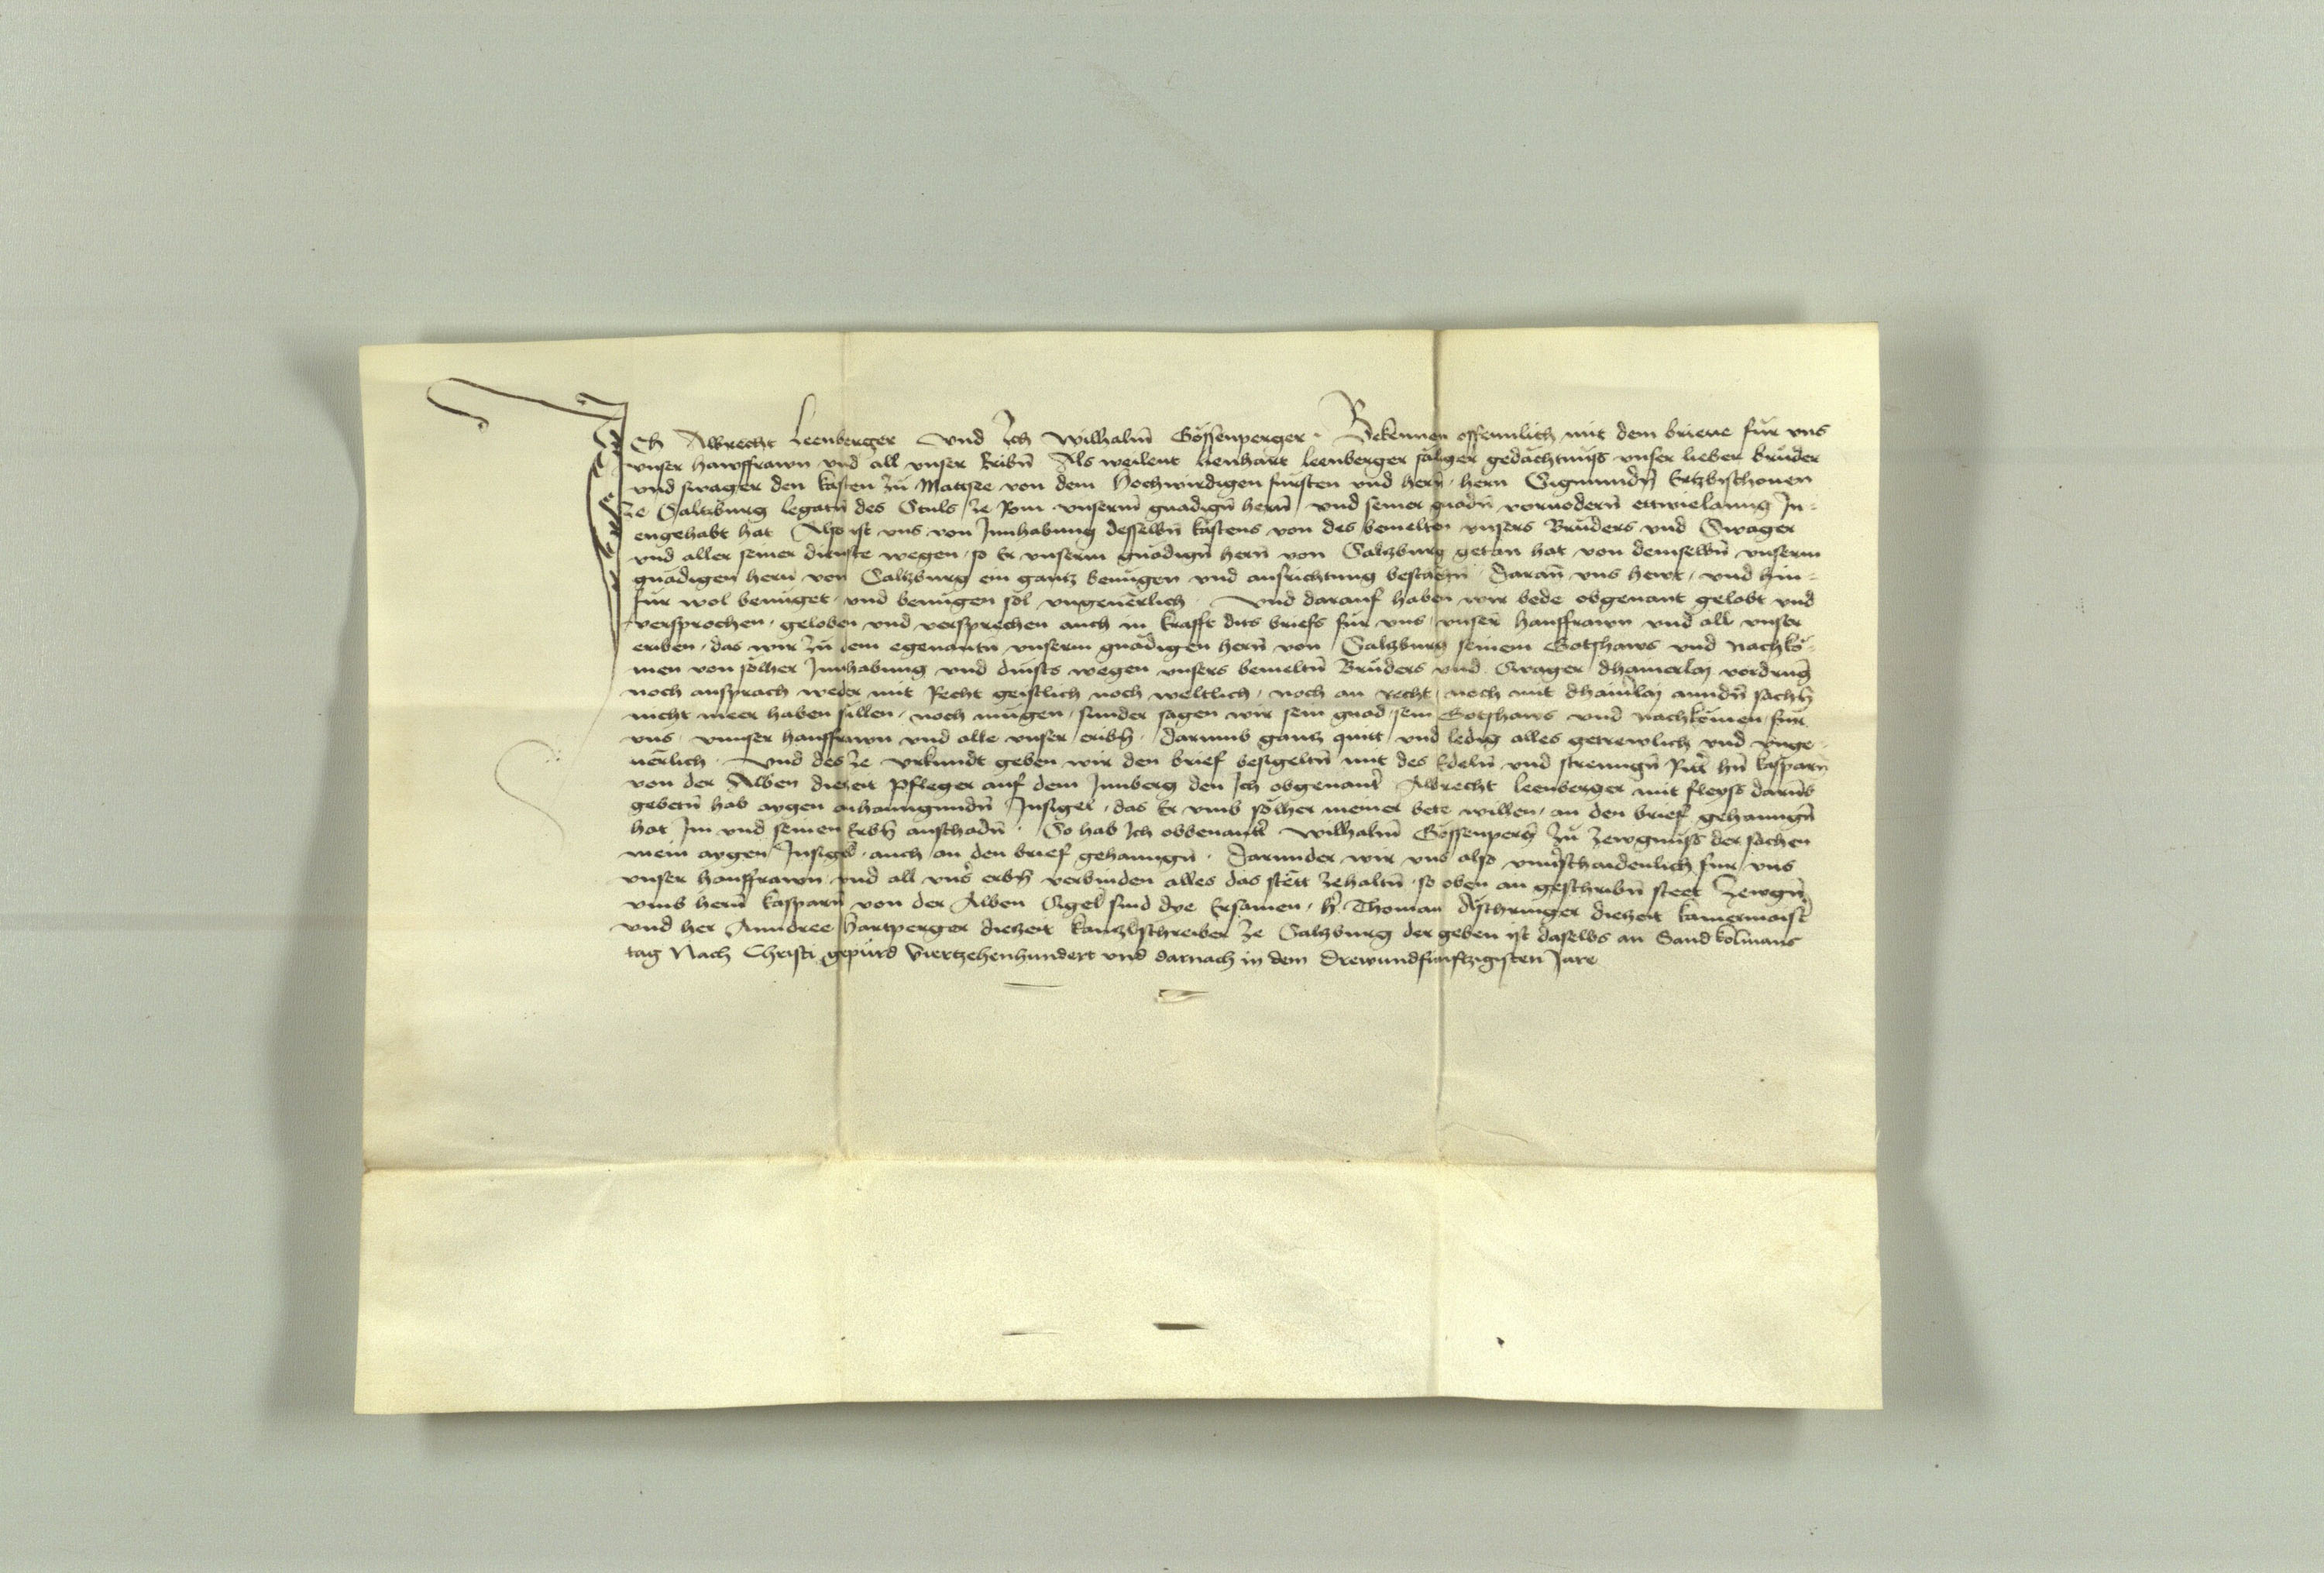 Ich Albrecht Leenberger vnd Ich Wilhalm̄ Gössenperger · Bekennen offennlich mit dem brieue für vns
vnser hawsfrawn vnd all vnser Eribn̄ Als weilent lienhart leenberger säliger gedächtnuss vnser lieber bruder
vnd swager den kasten zu Mattsee von dem Hochwirdigen fürsten vnd hern̄ · hern Sigmundn̄ Ertzbischouen
ze Saltzburg legatn̄ des Stuls ze Rom vnserm̄ gnadign̄ hern̄ vnd seiner gnadn̄ voruodern̄ ettwielanng In-
engehabt hat Also ist vns von Innhabung desselbn̄ kastens von des bemelten vnsers Bruders vnd Swager
vnd aller seiner dienste wegen · so Er vnserm gnädign̄ hern̄ von Saltzburg getan hat von demselbn̄ vnserm
gnädigen hern̄ von Saltzburg ein gantz benügen vnd ausrichtung beschehn̄ · Daran̄ vns hewt · vnd hin-
für wol benüget · vnd benügen sol vngeuerlich · Vnd darauf haben wir bede obgenant gelobt vnd
versprochen · geloben vnd versprechen auch in krafft dits briefs für vns vnser̄ hausfrawn vnd all vnser
eriben · das wir zu dem egenantn̄ vnserm gnädigen hern̄ von Saltzburg seinem Gotshaws vnd nachkö-
men von sölher Innhabung vnd dinsts wegen vnsers bemeltn̄ Bruders vnd Swager dhainerlay vordrunḡ
noch ansprach weder mit Recht geistlich noch weltlich · noch an recht noch mit dhainˀlay anndn̄ sachn̄
nicht meer haben süllen · noch mügen · sunder sagen wir sein gnad · sein Gotshaws vnd nachkömen · für
vns · vnnser hausfrawn vnd alle vnser eribn̄ · darumb gantz quitt vnd ledig alles getrewlich vnd vnge-
uerlich · Vnd des ze vrkundt geben wir den brief besigeltn̄ mit des Edeln̄ vnd strenngn̄ Rittˀ hn̄ kasparn̄
von der Alben diezeit Pfleger auf dem Innberg den Ich obgenantˀ Albrecht leenberger mit fleyss darūb
gebetn̄ hab aygen anhanngundn̄ Insigel · das Er vmb sölher meiner bete willen · an den brief gehanngn̄
hat Im vnd seinen Erbn̄ anschadn̄ · So hab Ich obbenantˀ Wilhalm̄ Gössenpergˀ zu zewgnüss der sachen
mein aygen Insigel · auch an den brief gehanngn̄ · Darunder wir vns also vnuˀschaidenlich für vns
vnser hausfrawn vnd all vnsˀ erbn̄ verbinden alles das stëtt zehaltn̄ · so oben an geschribn̄ steet Zewgn̄
vmb hern̄ kasparn̄ von der Alben Sigel sind dye Ersamen · hˀ Thoman Aschringer diezeit kamermaistˀ
vnd her Anndree Hartperger diezeit kantzlschreiber ze Saltzburg der geben ist daselbs an Sand kolmans
tag Nach Christi gepurd Viertzehenhundert vnd darnach in dem Drewundfünftzigisten Jare